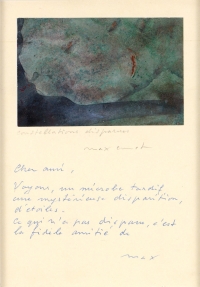 max ernst
Cher ami,
Voyons, un microbe tardif
une mystérieuse disparition,
d'étoiles.
Ce qui n'a pas disparu, c'est
la fidèle amitié de
max